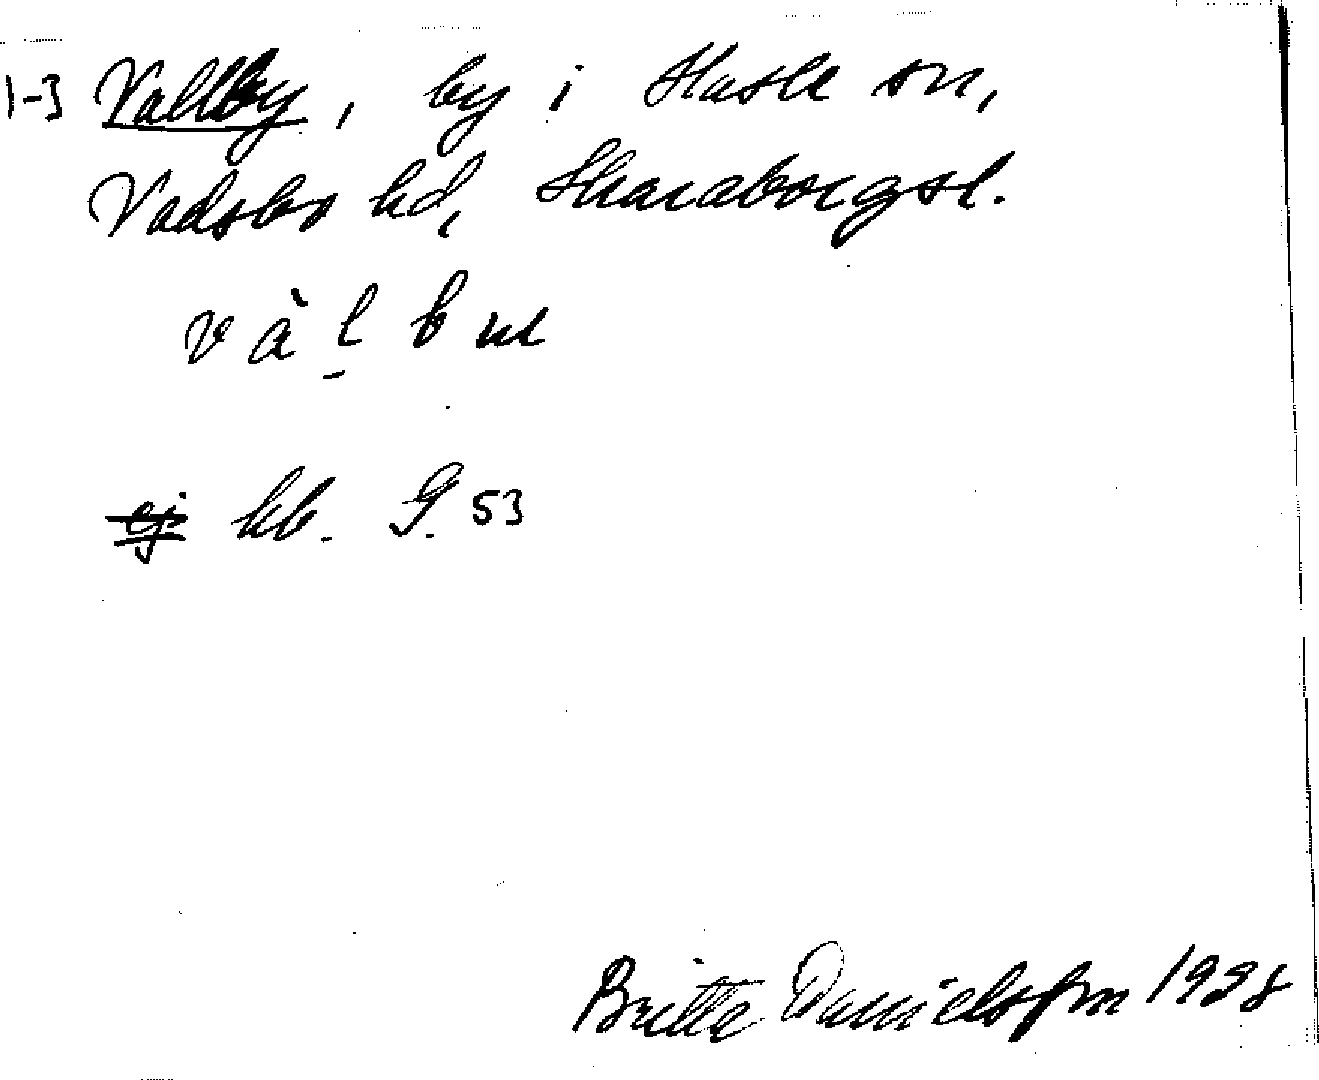 1-3 Vallby, by i Hasle sn,
Vadsbo hd, Skaraborgsl.
v à l b
ej hb. G. 53
Britta Danielsson 1938